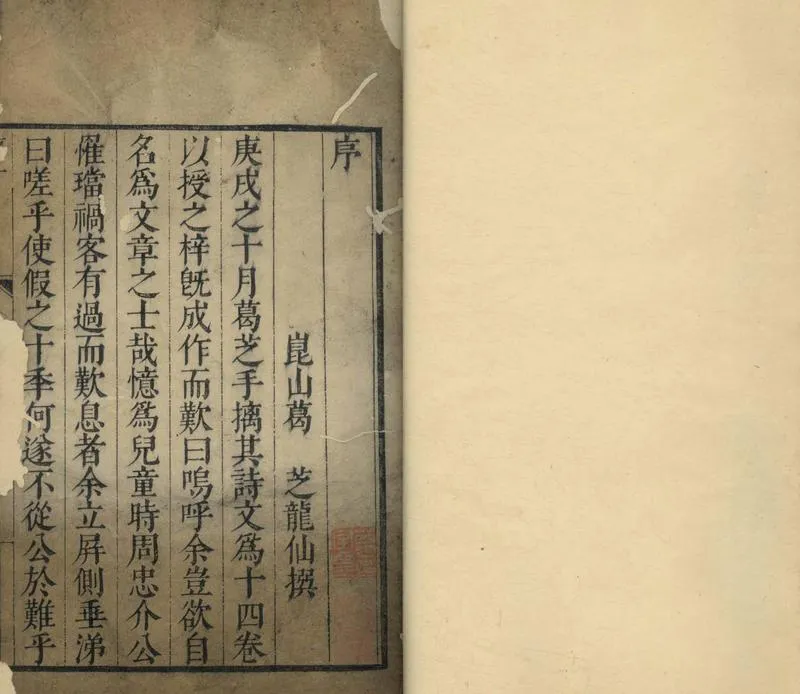 序
崑山葛 芝龍仙撰
庚戌之十月葛芝手擿其詩文爲十四卷
以授之梓旣成作而歎曰嗚呼余豈欲自
名爲文章之士哉憶爲兒童時周忠介公
罹璫禍客有過而歎息者余立屛側垂涕
曰嗟乎使假之十季何遂不從公於難乎